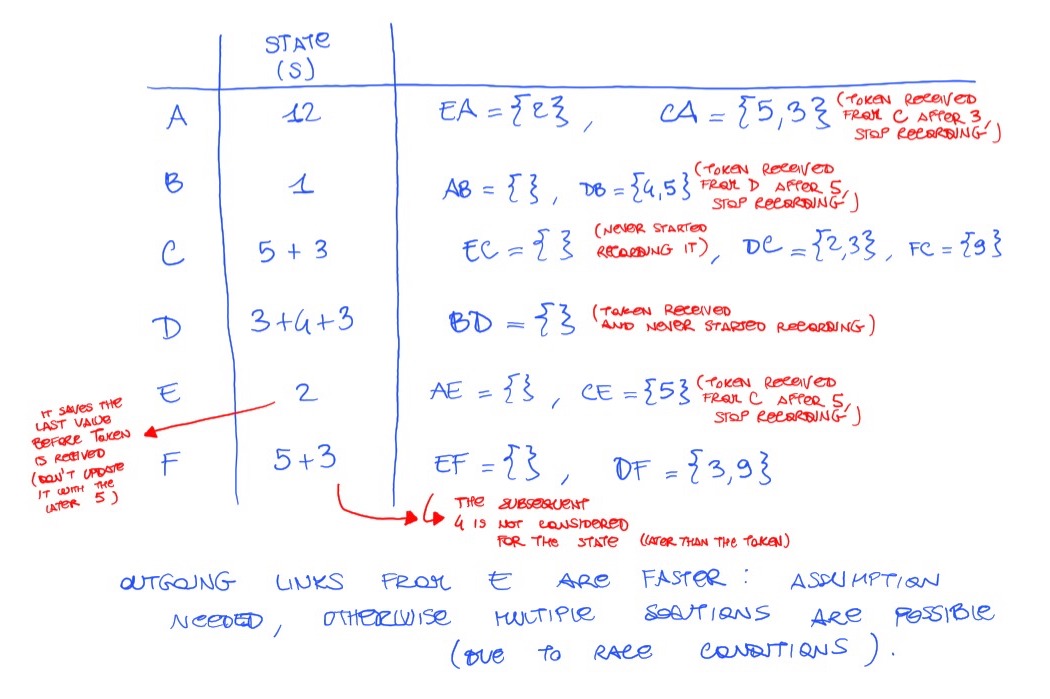 STATE
(S)
A 12 EA = {2}, CA = {5,3} (TOKEN RECEIVED
FROM C AFTER 3,
STOP RECORDING)
B 1 AB = {}, DB = {4,5} (TOKEN RECEIVED
FROM D AFTER 5,
STOP RECORDING)
C 5 + 3 EC = {} (NEVER STARTED
RECORDING IT), DC = {2,3}, FC = {9}
D 3+4+3 BD = {} (TOKEN RECEIVED
AND NEVER STARTED RECORDING)
E 2 AE = {}, CE = {5} (TOKEN RECEIVED
FROM C AFTER 5,
STOP RECORDING)
IT SAVES THE
LAST VALUE
BEFORE TOKEN
IS RECEIVED
(DON'T UPDATE
IT WITH THE
LATER 5)
F 5+3 EF = {}, DF = {3,9}
THE SUBSEQUENT
4 IS NOT CONSIDERED
FOR THE STATE (LATER THAN THE TOKEN)
OUTGOING LINKS FROM E ARE FASTER: ASSUMPTION
NEEDED, OTHERWISE MULTIPLE SOLUTIONS ARE POSSIBLE
(DUE TO RACE CONDITIONS).